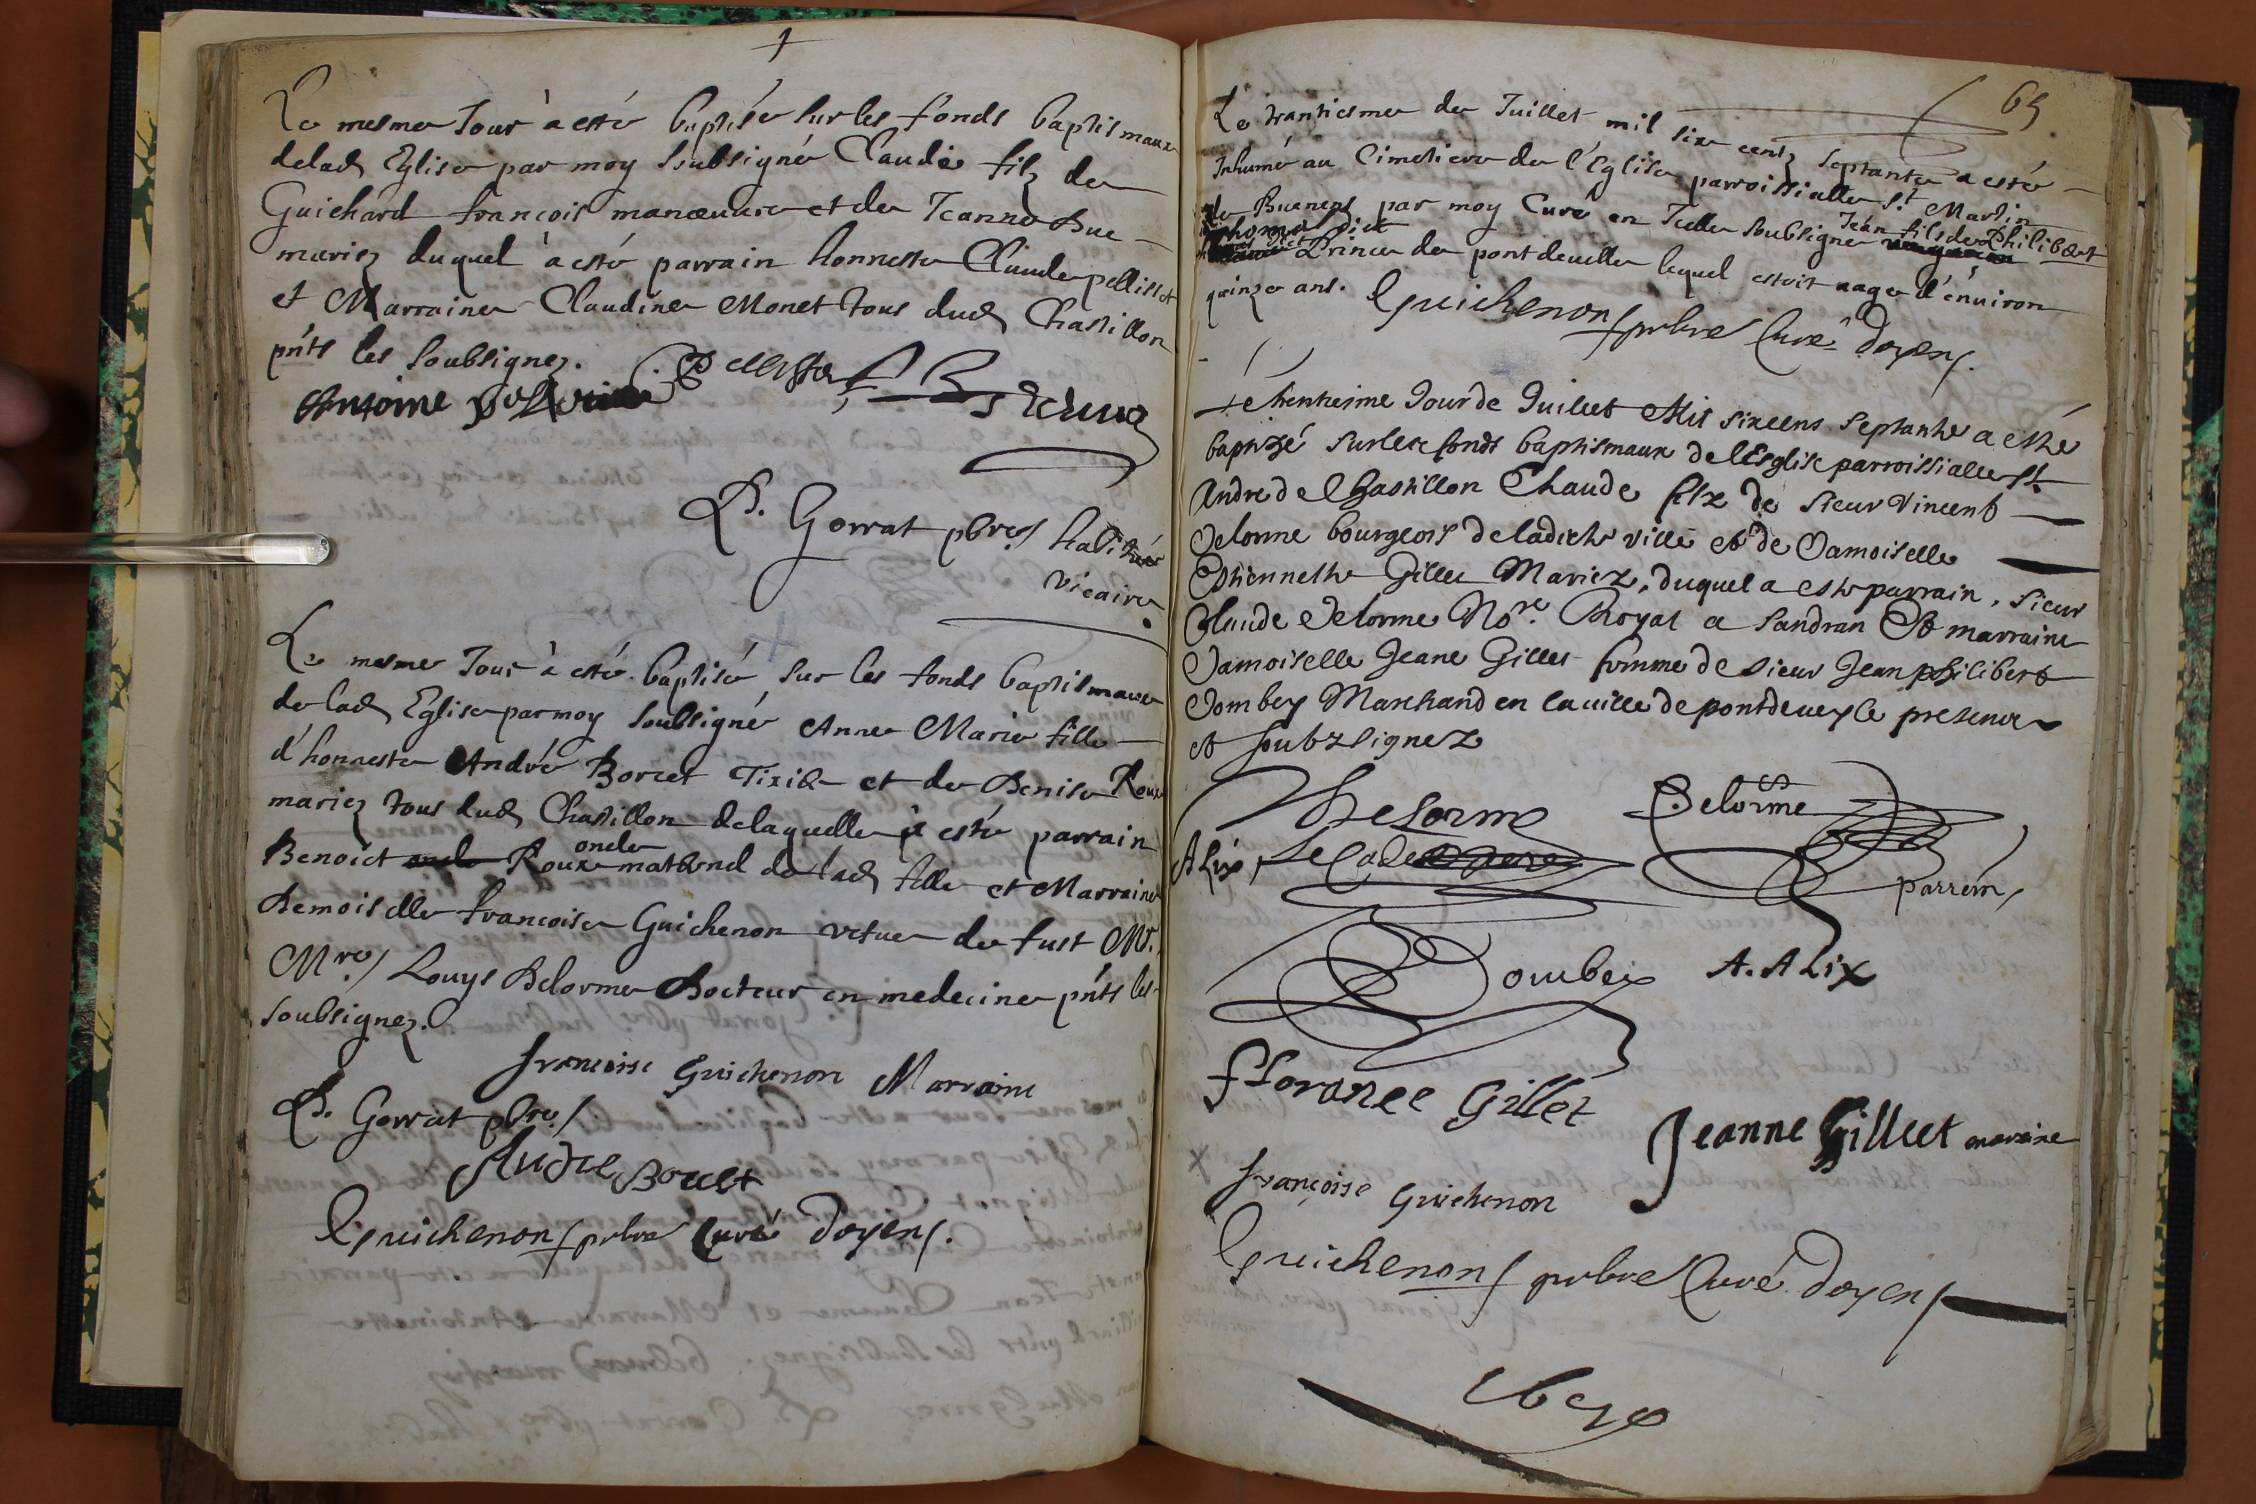 Le mesme Jour à esté baptisée sur les fonds baptismaux
delad Eglise par moy soubsigné Claude filz de
Guichard francois manœuure et de Jeanne Bue
mariez duquel à esté parrain honneste Claude pellisset
et Marraine Claudine Monet tous dud Chastillon
pnts les soubsignez.
Antoine
P. Gorrat pbre habitué
vicaire
Le mesme Jour à esté baptisé sur les fonds baptismaux
de lad Eglise par moy soubsigné Anne Marie fille
d'honneste André Borcet Tixier et de Denise Roux
mariez tous dud Chastillon delaquelle à esté parrain
Benoict Roux oncle maternel de lad fille et Marraine
Demoiselle francoise Guichenon vefue de fust Mr.
Mre Louys Delorme Docteur en medecine pnts les
soubsignez.
francoise Guichenon Marraine
P. Gorrat pbre
Andre Borcet
Guichenon pbre Curé doyen.
65
Le trantiesme de Juillet mil six centz septante a esté
Inhumé au Cimetiere de l'Eglise parroissialle St Martin
de Buenens par moy Curé en Icelle soubsigné Jean fils de Philibert
Thomas dict
Prince de pontdeuelle lequel estoit aage d'énuiron
quinze ans. Guichenon pbre Curé doyen.
Le trentiesme Jour de Juillet Mil sixcens septante a esté
baptizé sur les fonds baptismaux de lEsglise parroissialle St.
Andre de Chastillon Claude filz de sieur Vincent
Delorme bourgeois de ladicte ville et de Damoiselle
Estiennette Gillet Mariez, duquel a este parrain, sieur
Claude Delorme Nore. Royal a Sandran Et marraine
Damoiselle Jeane Gillet femme de sieur Jean philibert
Dombey Marchand en la uille de pontdeueyle presence
et soubzsignez
Delorme
Delorme
Alix
Le Cadet
parrein
Dombey
A. Alix
fforance Gillet
Jeanne Gillet maraine
françoise Guichenon
Guichenon pbre Curé doyen